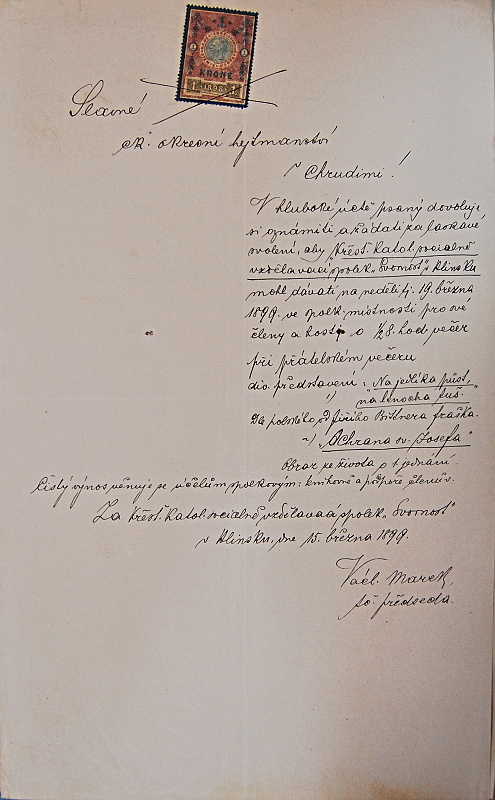 1 1
KRONE
1 1898 1
Slavné
ck. okresní hejtmanství
v Chrudimi!
V hluboké úctě psaný dovoluje
si oznámiti a žádati za laskavé
svolení, aby „Křest. katol. socialně
vzdělavací spolek „Svornost" v Hlinsku
mohl dávati na neděli tj. 19. března
1899 ve spolk. místnosti pro své
členy a hosty o ½8. hod večer
při přátelském večeru
div. představení: „Na jedlíka půst,
1) na lenocha kus."
Dle polského od Jiřího Bittnera fraška.
2) „Ochrana sv. Josefa"
Obraz ze života o 1 jednání.
Čistý výnos věnuje se účelům spolkovým: knihovně a podpoře členův.
Za Křest. katol. socialně vzdělavací spolek „Svornost"
v Hlinsku, dne 15. března 1899.
Václ. Marek,
předseda.